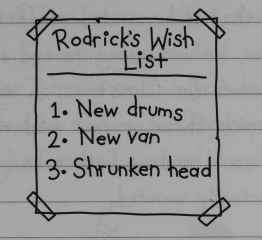 Rodrick's Wish
List
1. New drums
2. New van
3. Shrunken head